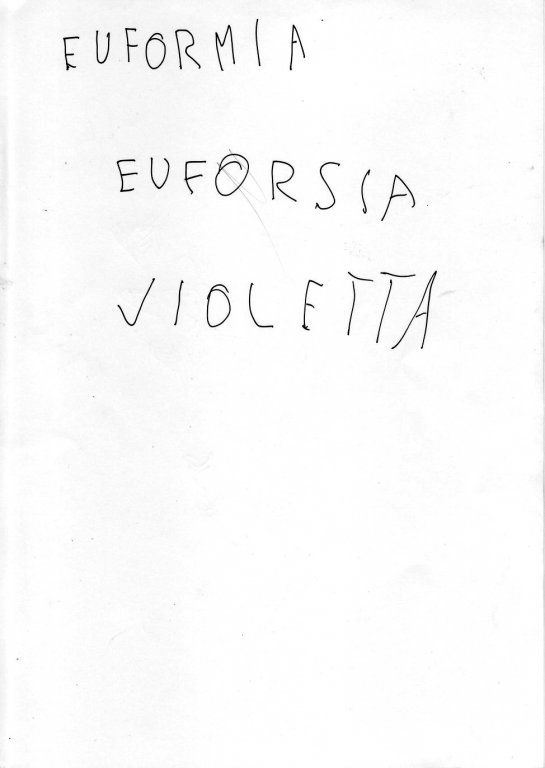 EUFORMIA
EUFORSIA
VIOLETTA